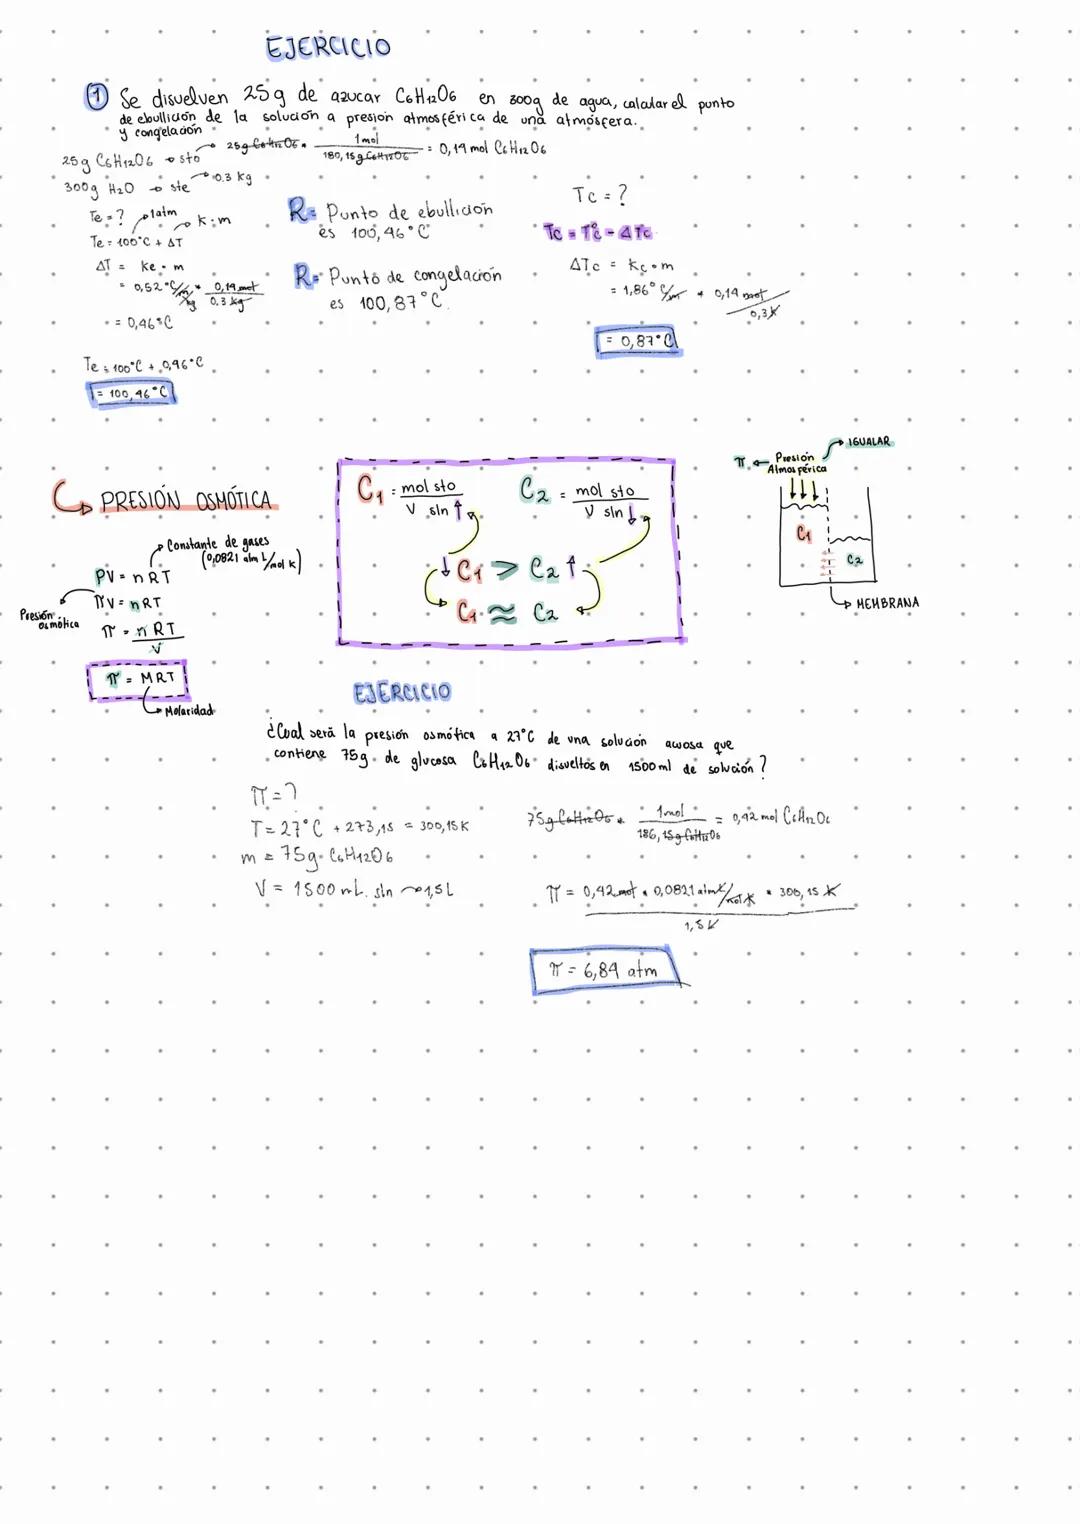 EJERCICIO
1 Se disuelven 25g de azucar C6H12O6 en 300g de agua, calcular el punto
de ebullición de la solución a presión atmosférica de una atmósfera.
y congelación
25g C6H12O6 → sto → 25g C6H12O6 • 1mol / 180,15g C6H12O6 = 0,14 mol C6H12O6
300g H2O → ste → 0.3 kg
Te = ? → 1atm
Te = 100°C + ΔT → K·m
ΔT = Ke • m
= 0,52 °C/m • 0,14 mol / 0,3 kg
kg
= 0,46°C
Te = 100°C + 0,46°C
= 100,46°C
R= Punto de ebullición
es 100,46°C
R= Punto de congelación
es 100,87°C.
Tc = ?
Tc = T°c - ΔTc
ΔTc = Kc • m
= 1,86° C/m • 0,14 mol / 0,3K
= 0,87°C
PRESIÓN OSMÓTICA
Constante de gases
(0,0821 atm L/mol K)
PV = nRT
πV = nRT
Presión
osmótica
π = nRT / V
π = MRT
Molaridad
C1 = mol sto / V sln ↑
C2 = mol sto / V sln ↓
↓ C1 > C2 ↑
C1 ≈ C2
IGUALAR
π ← Presión
Atmosférica
C1
C2
MEMBRANA
EJERCICIO
¿Cual será la presión osmótica a 27°C de una solución acuosa que
contiene 75g de glucosa C6H12O6 disueltos en 1500ml de solución?
π = ?
T = 27°C + 273,15 = 300,15K
m = 75g C6H12O6
V = 1500 mL sln → 1,5L
75g C6H12O6 • 1mol / 186,15g C6H12O6 = 0,42 mol C6H12O6
π = 0,42 mol • 0,0821 atmL/mol K • 300,15 K
1,5L
π = 6,84 atm